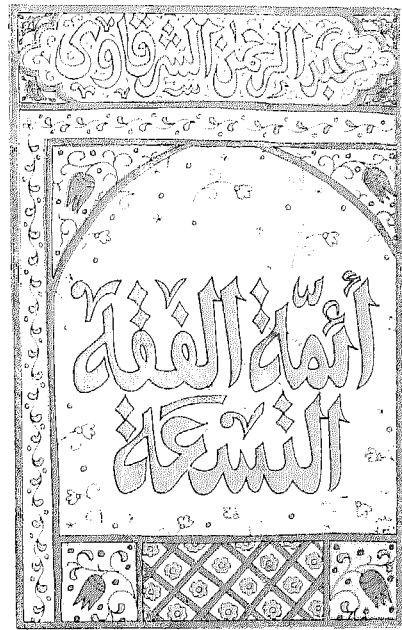 عبد الرحمن الشرقاوى
أئمة الفقه
التسعة